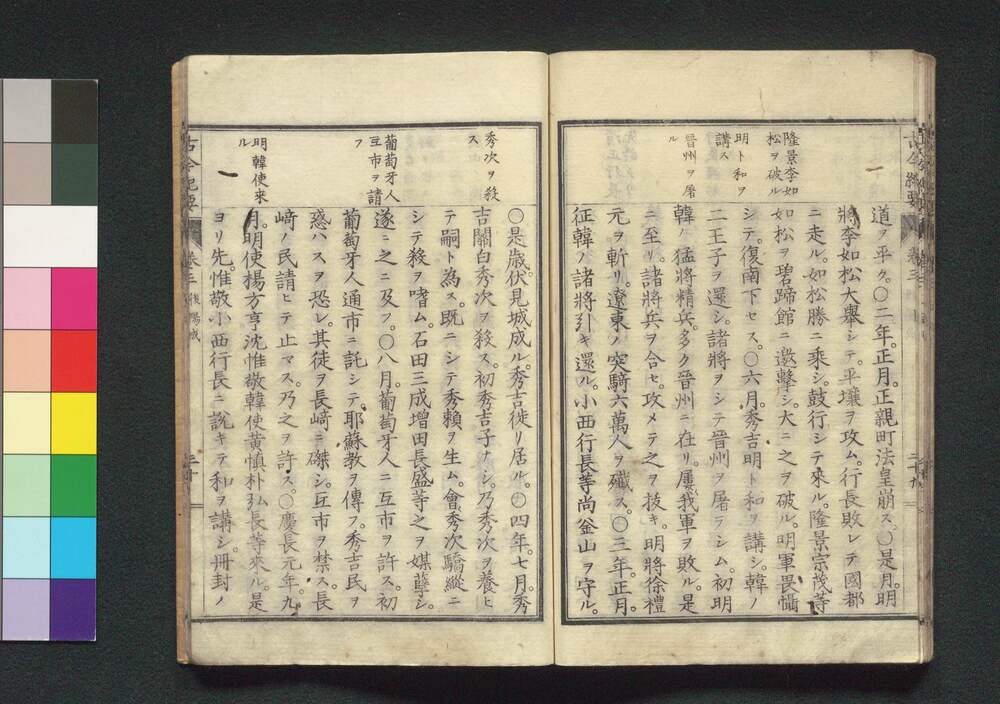 隆景李如
松ヲ破ル
明ト和ヲ
講ス
晉州ヲ屠
ル
道ヲ平ク。〇二年。正月。正親町法皇崩ス。〇是月。明
將李如松大舉シテ。平壤ヲ攻ム。行長敗レテ國都
ニ走ル。如松勝ニ乘シ。鼓行シテ來ル。隆景宗茂等
如松ヲ碧蹄館ニ邀擊シ。大ニ之ヲ破ル。明軍畏懾
シテ。復南下セス。〇六月。秀吉明ト和ヲ講シ。韓ノ
二王子ヲ還シ。諸將ヲシテ晉州ヲ屠ラシム。初明
韓ノ猛將精兵。多ク晉州ニ在リ。屢我軍ヲ敗ル。是
ニ至リ。諸將兵ヲ合セ。攻メテ之ヲ拔キ。明將徐禮
元ヲ斬リ。遼東ノ突騎六萬人ヲ殲ス。〇三年。正月。
征韓ノ諸將引キ還ル。小西行長等尚釜山ヲ守ル。
秀次ヲ殺
ス
葡萄牙人
互市ヲ請
フ
明韓使來
ル
〇是歲。伏見城成ル。秀吉徙リ居ル。〇四年。七月。秀
吉關白秀次ヲ殺ス。初秀吉子ナシ。乃秀次ヲ養ヒ
テ嗣ト為ス。既ニシテ秀賴ヲ生ム。會秀次驕縱ニ
シテ殺ヲ嗜ム。石田三成增田長盛等之ヲ媒孽シ。
遂ニ之ニ及フ。〇八月。葡萄牙人ニ互市ヲ許ス。初
葡萄牙人通市ニ託シテ。耶蘇教ヲ傳フ。秀吉民ヲ
惑ハスヲ恐レ。其徒ヲ長﨑ニ磔シ。互市ヲ禁ス。長
﨑ノ民請ヒテ止マス。乃之ヲ許ス。〇慶長元年。九
月。明使揚方亨沈惟敬韓使黄慎朴弘長等來ル。是
ヨリ先。惟敬小西行長ニ說キテ和ヲ講シ。冊封ノ
古今紀要
卷三
後陽成